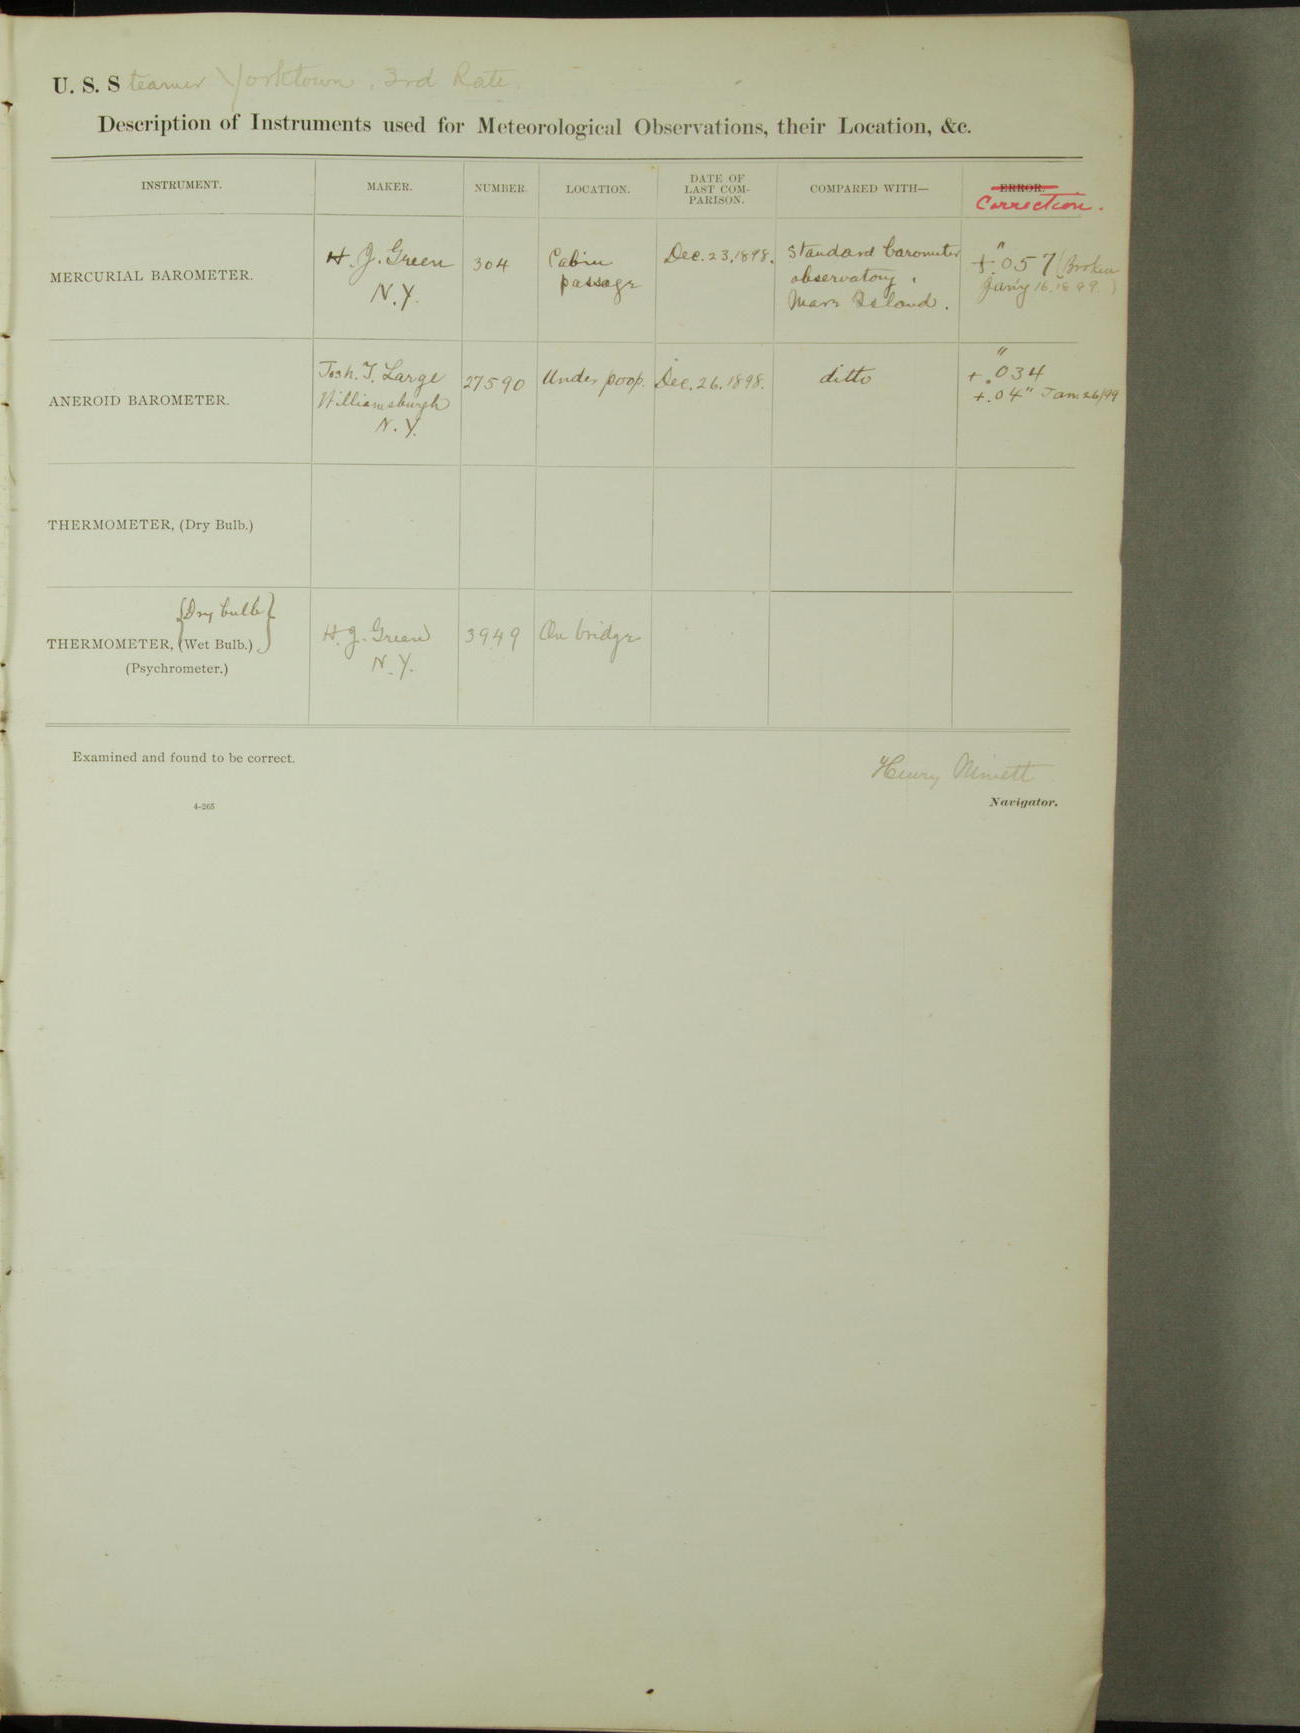 U. S. Steamer Yorktown, 3rd Rate.
Description of Instruments used for Meteorological Observations, their Location, &c.
INSTRUMENT. MAKER. NUMBER. LOCATION. DATE OF LAST COMPARISON. COMPARED WITH— ERROR. Correction.
MERCURIAL BAROMETER. H. J. Green N.Y. 304 Cabin passage Dec. 23, 1898. Standard barometer observatory, Mare Island. +".057 (Broken Jan'y 16, 1899.)
ANEROID BAROMETER. Josh. T. Large Williamsburgh N.Y. 27590 Under poop. Dec. 26, 1898. ditto +".034
+.04" Jan 26/99
THERMOMETER, (Dry Bulb.)
{Dry bulb}
THERMOMETER, (Wet Bulb.) H. J. Green N.Y. 3949 On bridge
(Psychrometer.)
Examined and found to be correct.
Henry
Navigator.
4-265